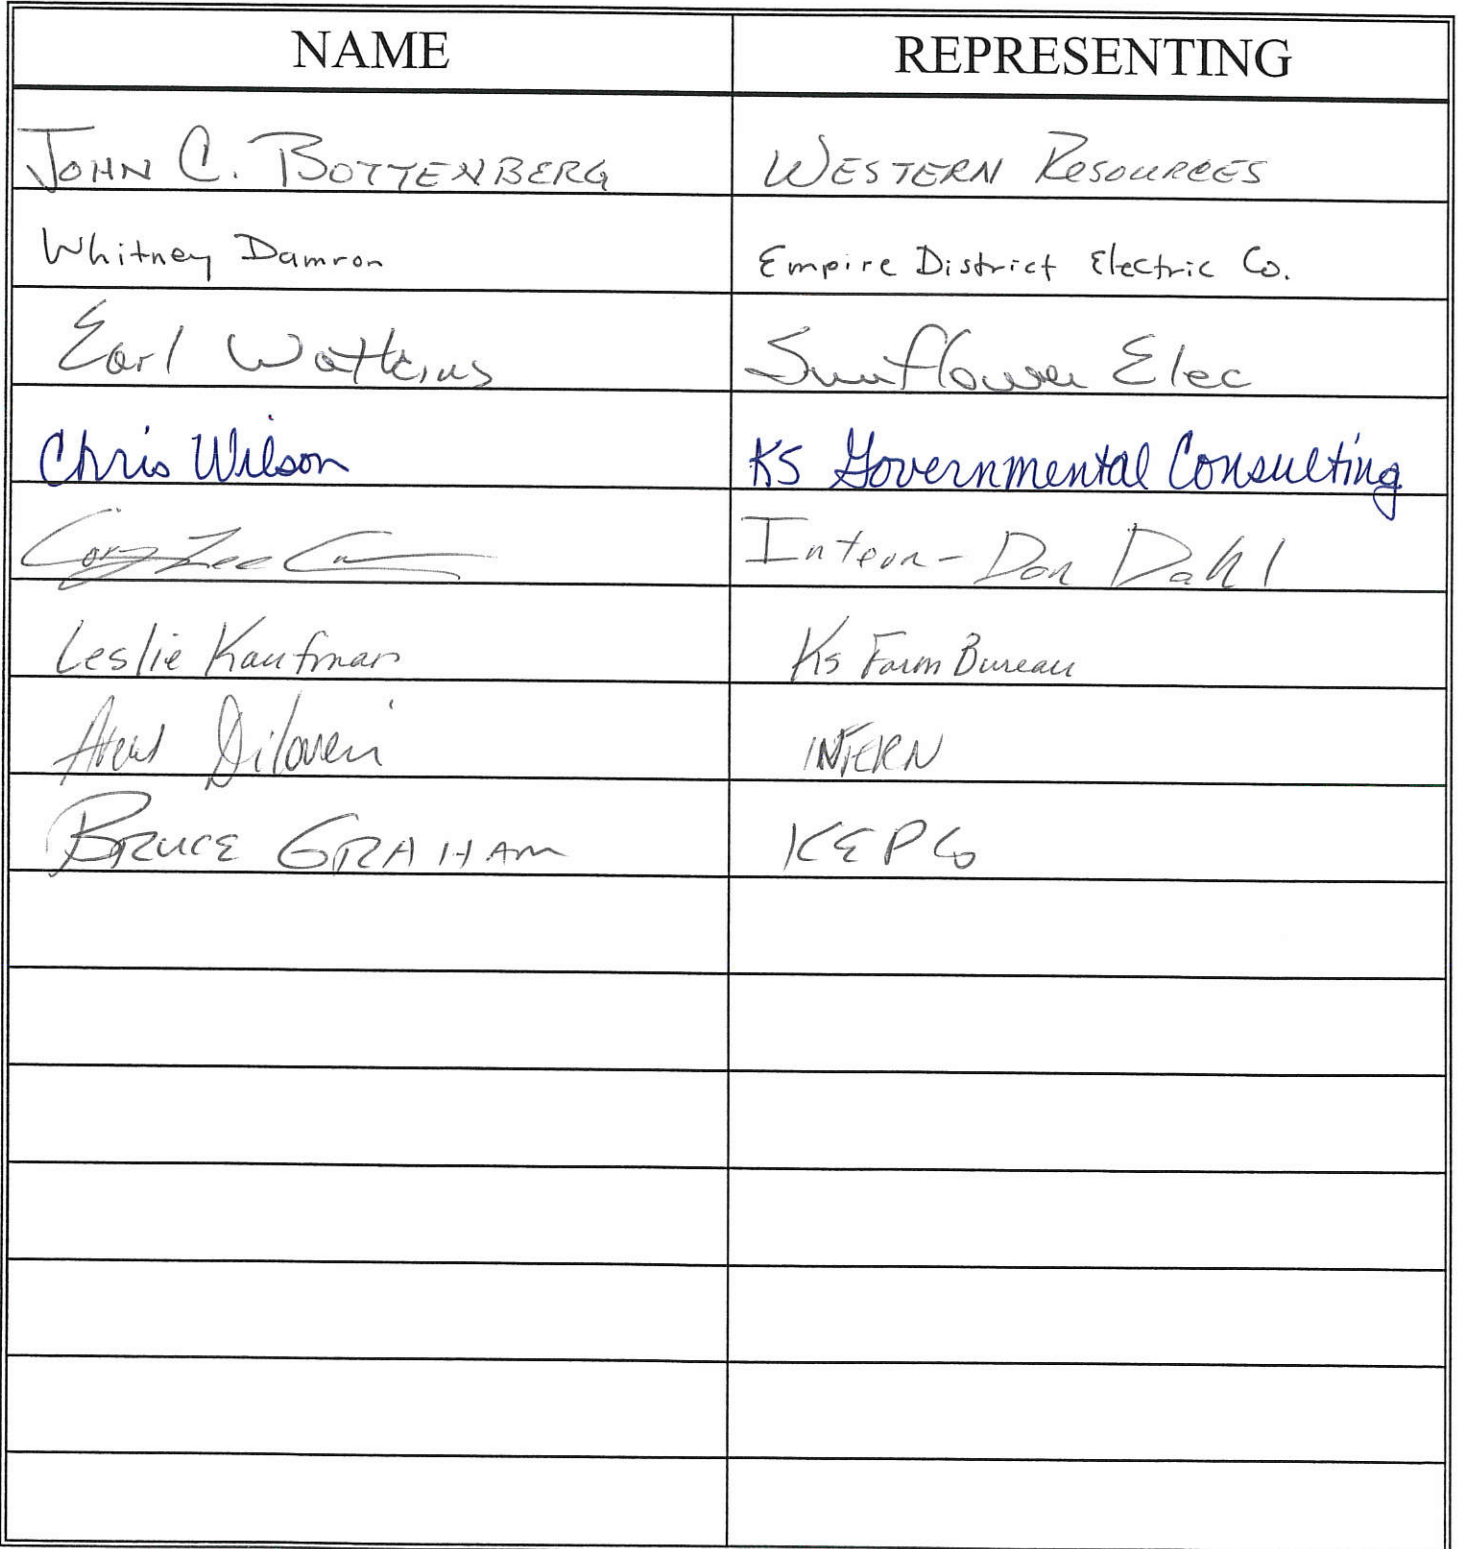 NAME REPRESENTING
JOHN C. BOTTENBERG WESTERN RESOURCES
Whitney Damron Empire District Electric Co.
Earl Watkins Sunflower Elec
Chris Wilson KS Governmental Consulting
Lee Intern - Don Dahl
Leslie Kaufman Ks Farm Bureau
INTERN
BRUCE GRAHAM KEPCo